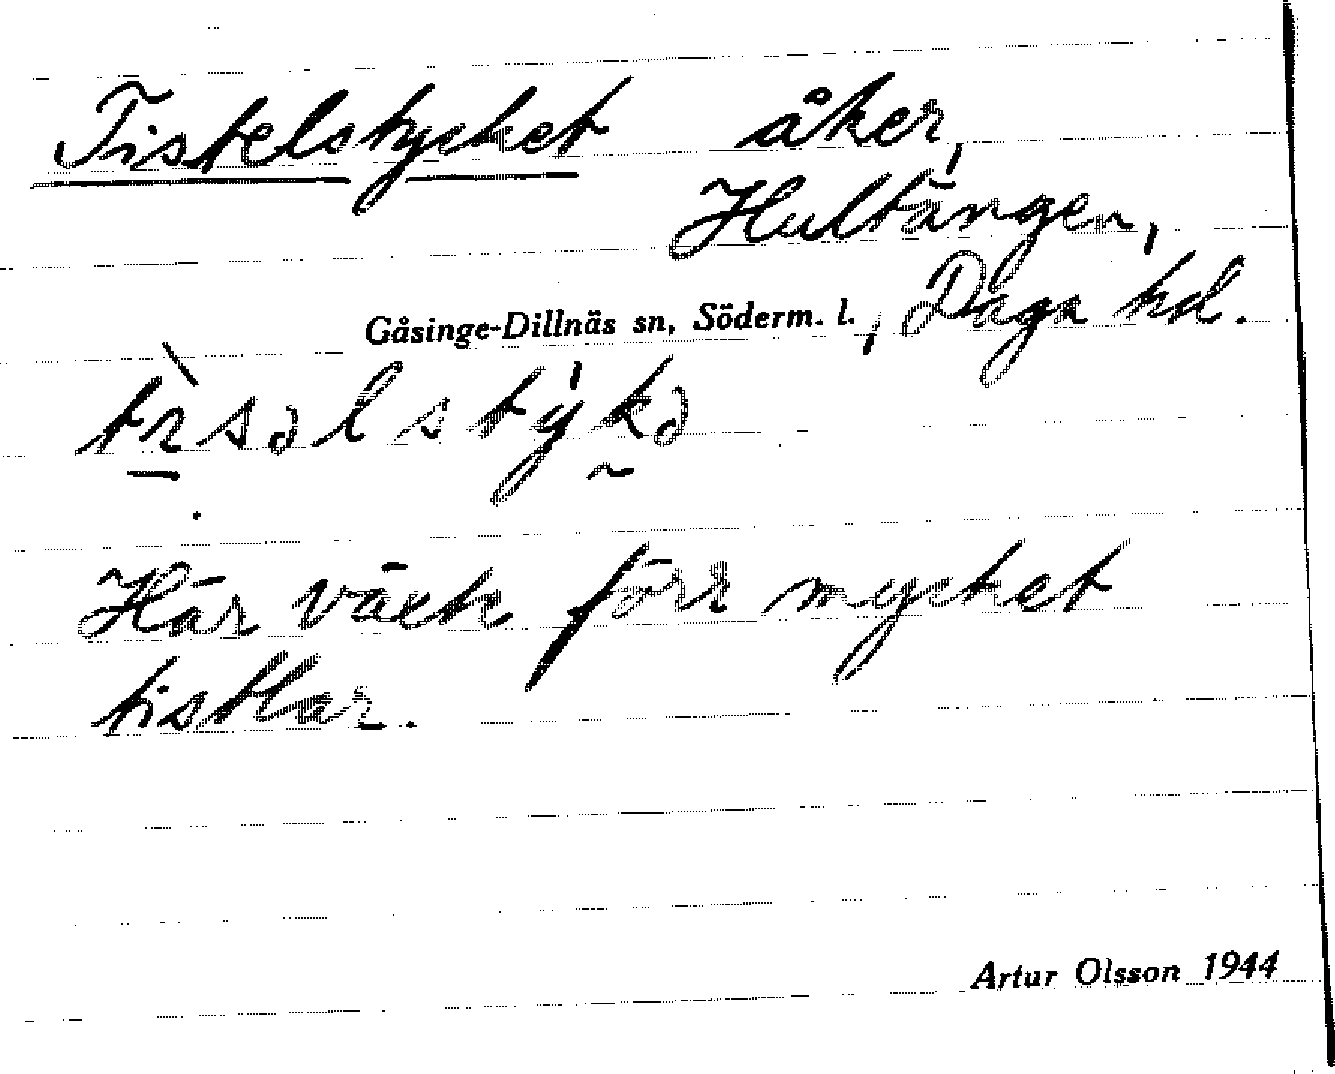 Tistelstycket åker,
Hultängen,
Gåsinge-Dillnäs sn, Söderm. l., Daga hd.
Här växte förr mycket
tistlar.
Artur Olsson 1944